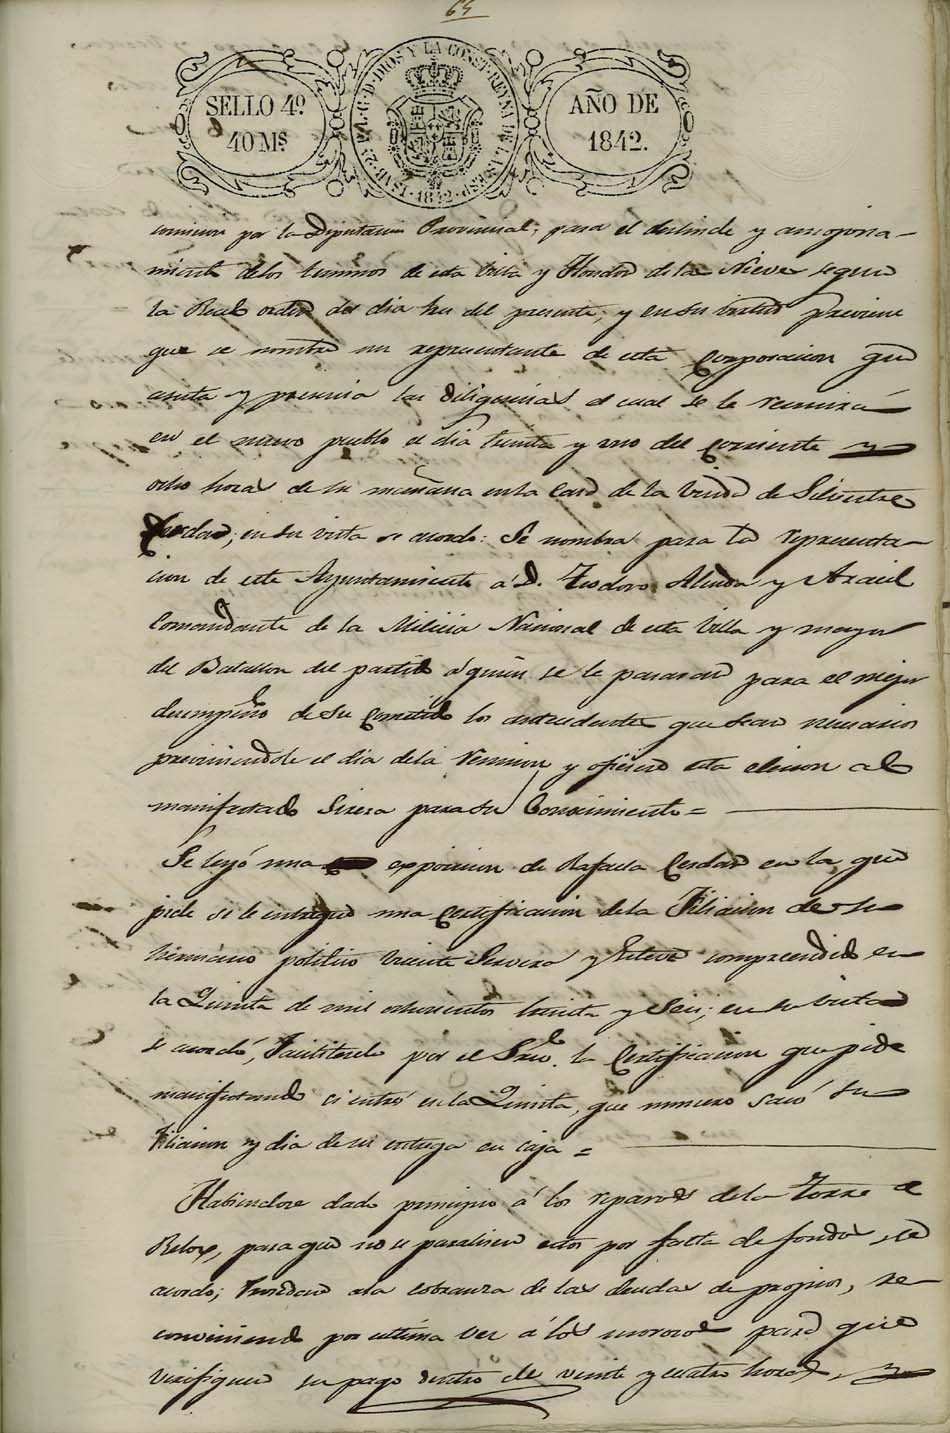 65
SELLO 4º.
40 Mˢ
ISAB. 2ª P. L. G. D. DIOS Y LA CONST. REYNA DE LAS ESP. 1842
AÑO DE
1842.
comision por la Diputacion Provincial, para el deslinde y amojona-
miento de los terminos de esta Villa y Hondon de las Nieves segun
la Real orden del dia tres del presente, y en su virtud previene
que se nombre un representante de esta Corporacion que
asista y presencia las diligencias el cual se le reunirá
en el nuevo pueblo el dia treinta y uno del corriente y
ocho horas de su mañana en la Casa de la Viuda de Silvestre
Cerdan; en su vista se acordo: Se nombra para la representa-
cion de este Ayuntamiento á D. Teodoro Alenda y Aracil
Comandante de la Milicia Nacional de esta Villa y mayor
del Batallon del partido á quien se le pasaran para el mejor
desempeño de su Cometido los antecedentes que sean necesarios
previniendole el dia de la reunion y oficiese esta eleccion al
manifestado Sirera para su Conocimiento =
Se leyó una exposicion de Rafaela Cerdan en la que
pide se le entregue una Certificacion de la Filiacion de su
hermano politico Vicente Cervera y Esteve comprendido en
la Quinta de mil ochocientos treinta y Seis; en su vista
se acordó, Facilitesele por el Srio. la Certificacion que pide
manifestando si entró en la Quinta, que numero sacó su
filiacion y dia de su entrega en caja =
Habiendose dado principio á los reparos de la Torre de
Relox, para que no se paralicen estos por falta de fondos, se
acordo; Procedase a la cobranza de las deudas de propios, re-
conviniendo por ultima vez á los morosos para que
verifiquen su pago dentro de veinte y cuatro horas, y